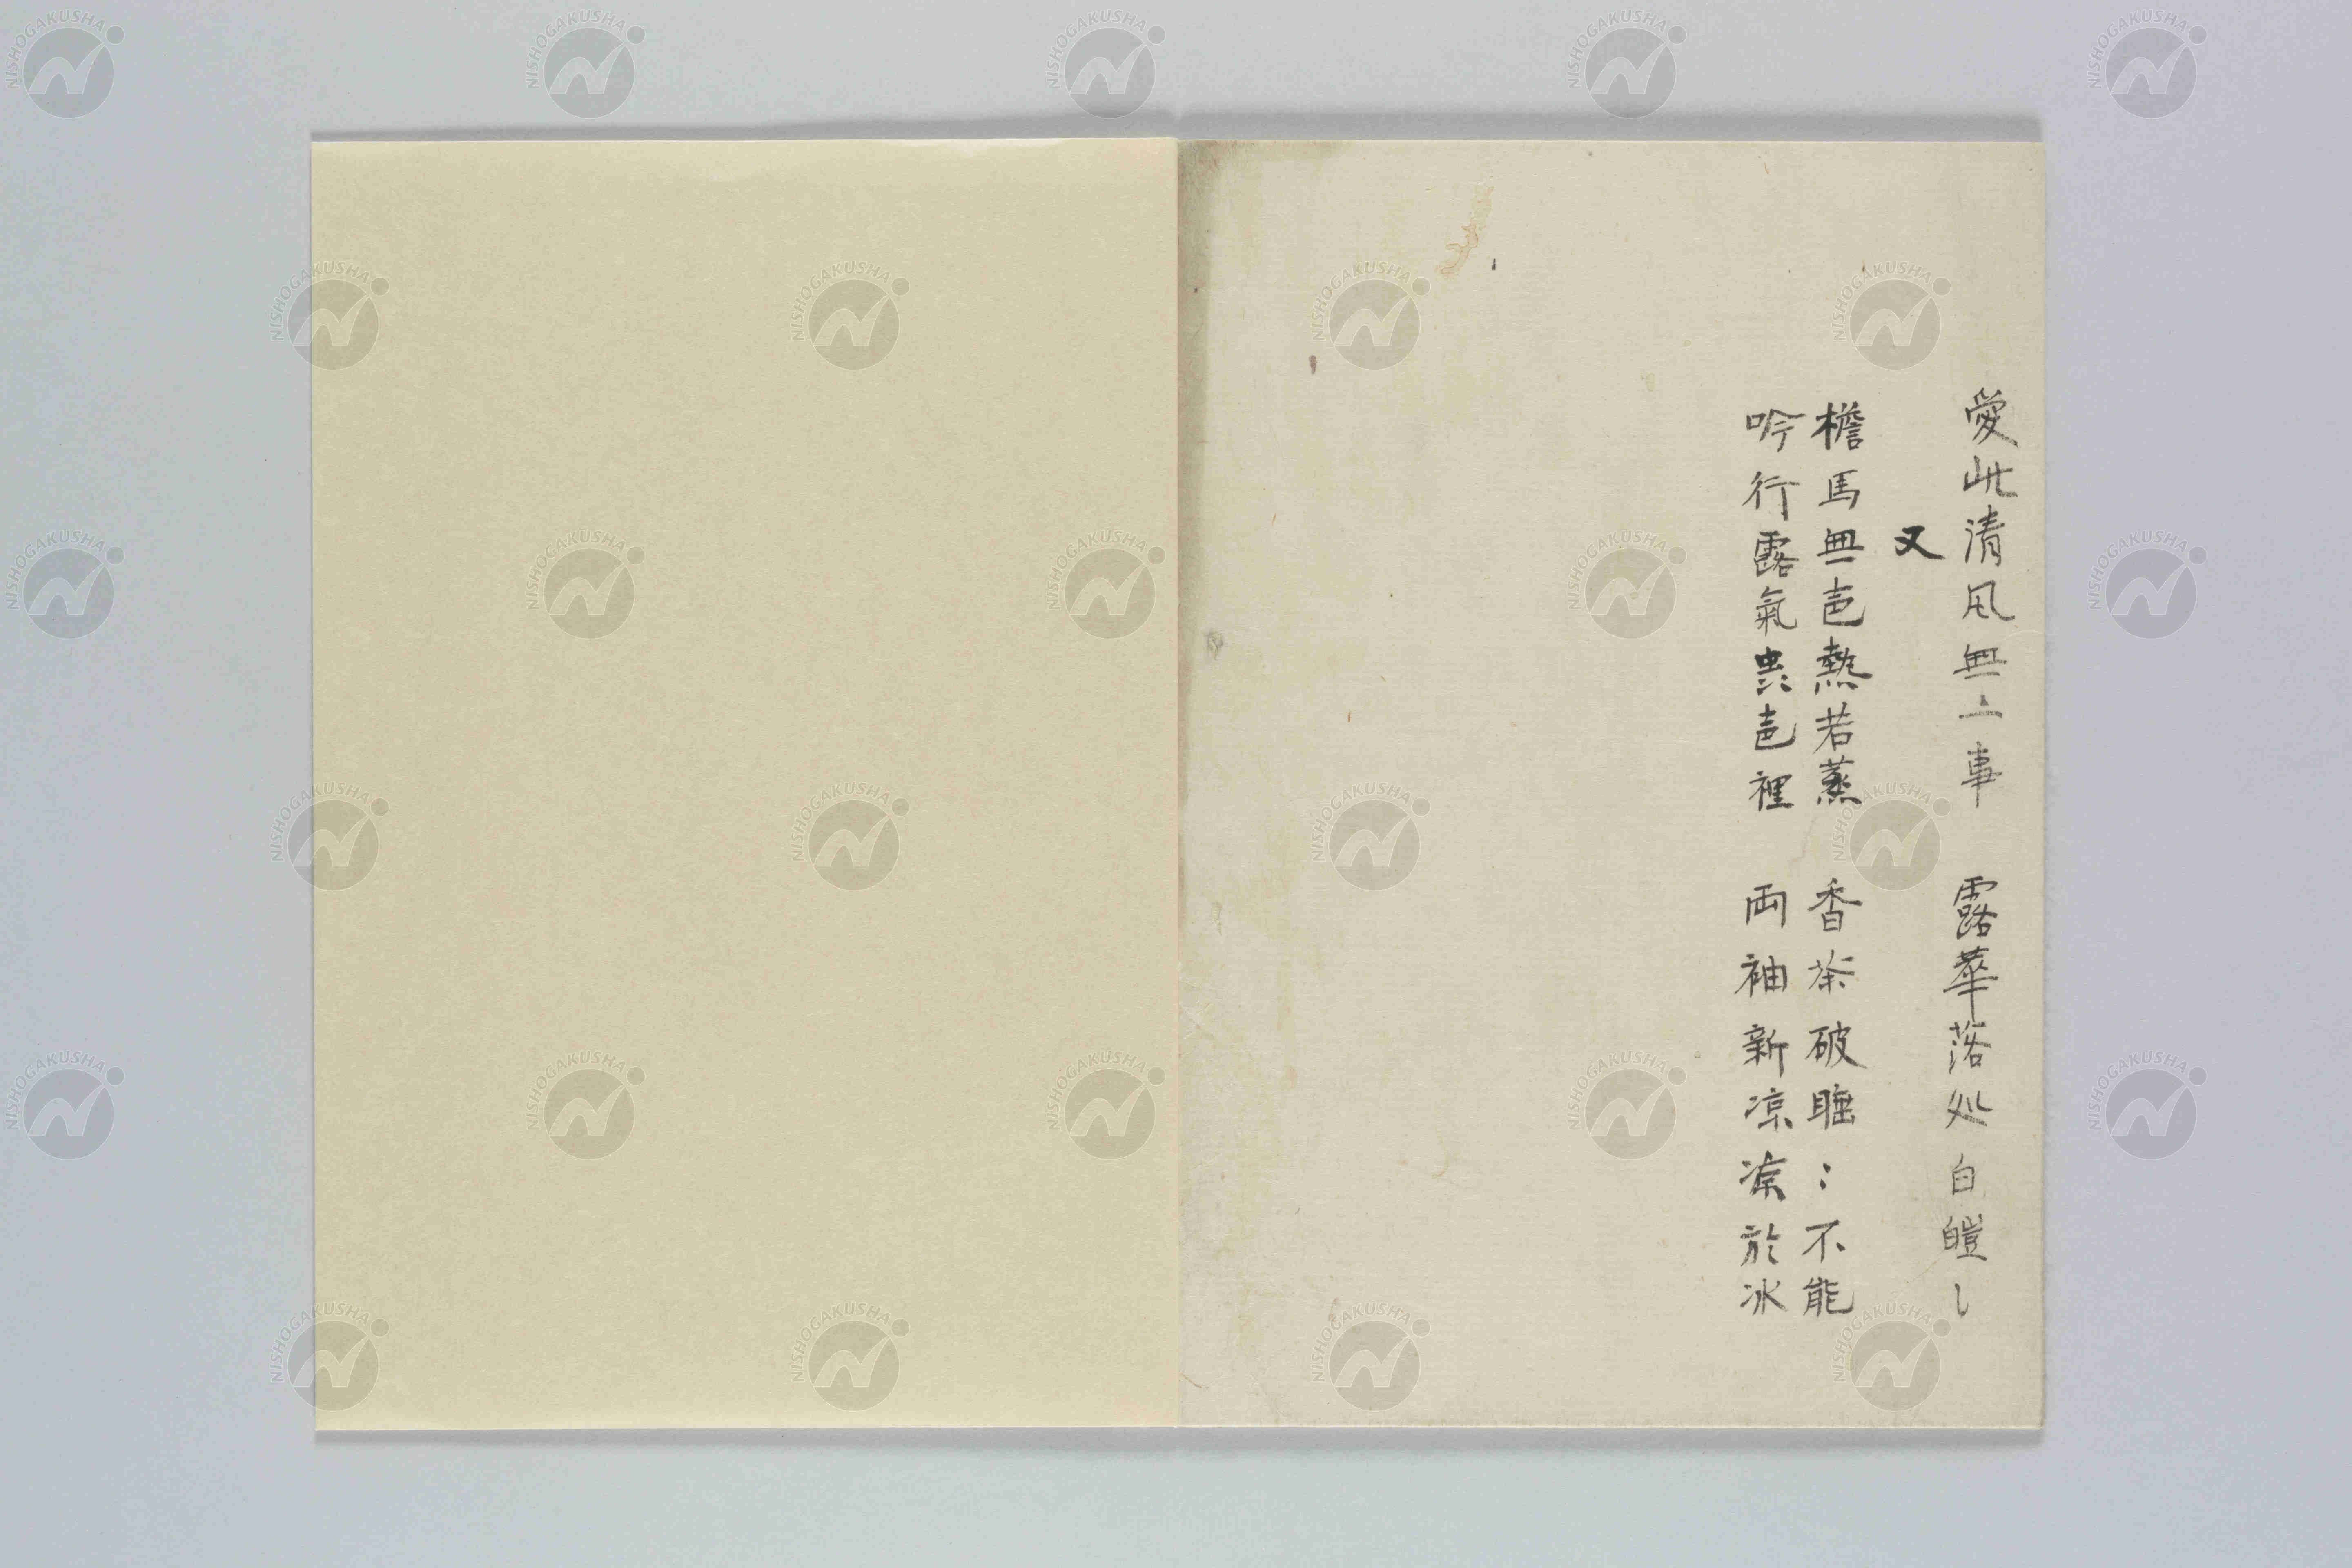 愛此清風無一事 露華落処自皚〻
又
檐馬無声熱若蒸 香茶破睡〻不能
吟行露氣虫声裡 両袖新凉凉於冰
NISHOGAKUSHA